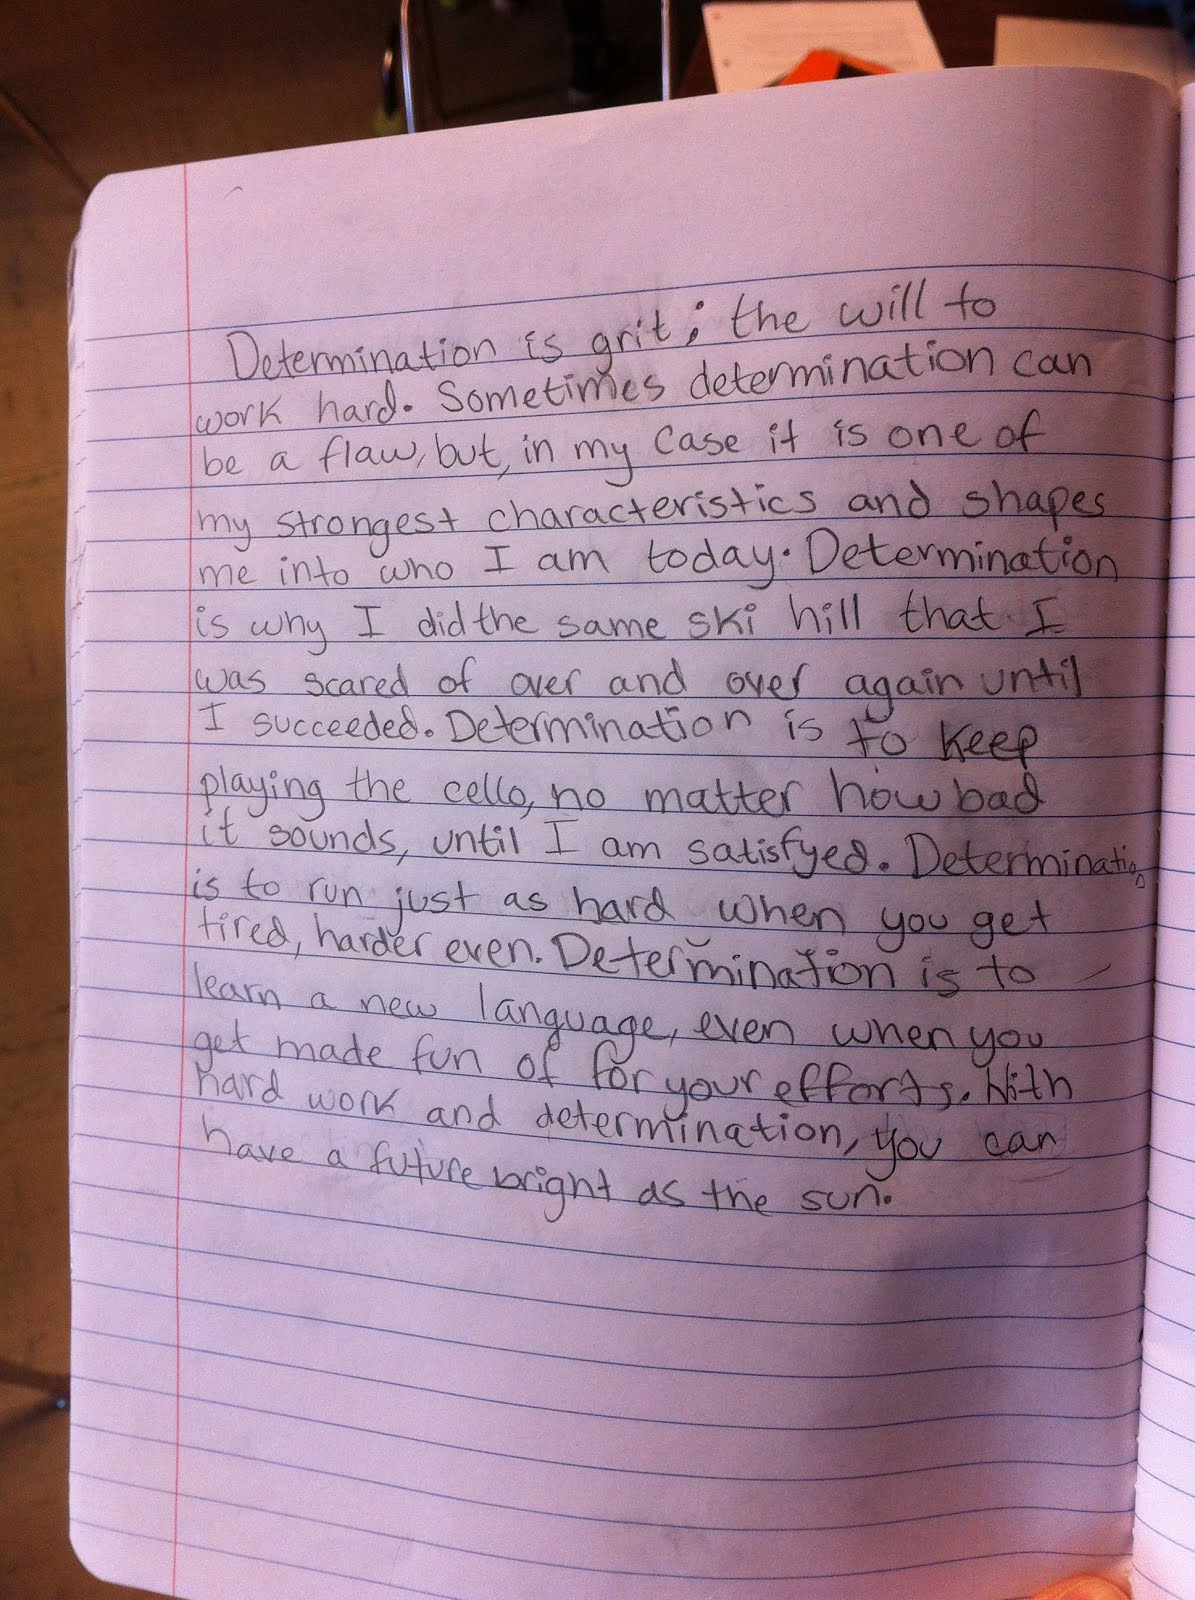 Determination is grit; the will to
work hard. Sometimes determination can
be a flaw, but, in my case it is one of
my strongest characteristics and shapes
me into who I am today. Determination
is why I did the same ski hill that I
was scared of over and over again until
I succeeded. Determination is to keep
playing the cello, no matter how bad
it sounds, until I am satisfyed. Determination
is to run just as hard when you get
tired, harder even. Determination is to
learn a new language, even when you
get made fun of for your efforts. With
hard work and determination, you can
have a future bright as the sun.